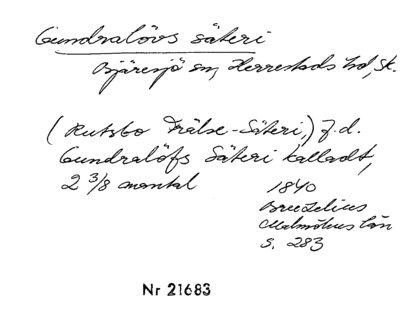 Gundralövs säteri
Bjäresjö sn, Herrestads hd, Sk.
(Rutsbo Frälse-Säteri,) f.d.
Gundralöfs Säteri kalladt,
2 3/8 mantal
1840
Bruzelius
Malmöhus län
s. 283
Nr 21683